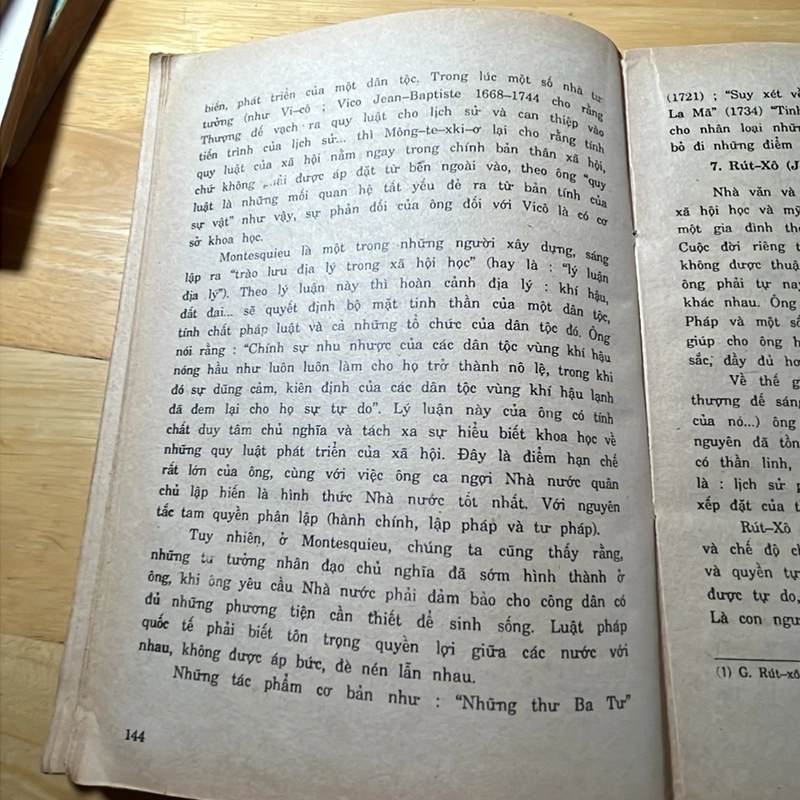 biến, phát triển của một dân tộc. Trong lúc một số nhà tư
tưởng (như Vi–cô ; Vico Jean–Baptiste 1668–1744 cho rằng
Thượng đế vạch ra quy luật cho lịch sử và can thiệp vào
tiến trình của lịch sử... thì Mông–te–xki–ơ lại cho rằng tính
quy luật của xã hội nằm ngay trong chính bản thân xã hội,
chứ không phải được áp đặt từ bên ngoài vào, theo ông “quy
luật là những mối quan hệ tất yếu đẻ ra từ bản tính của
sự vật” như vậy, sự phản đối của ông đối với Vicô là có cơ
sở khoa học.
Montesquieu là một trong những người xây dựng, sáng
lập ra “trào lưu địa lý trong xã hội học” (hay là : “lý luận
địa lý”). Theo lý luận này thì hoàn cảnh địa lý : khí hậu,
đất đai... sẽ quyết định bộ mặt tinh thần của một dân tộc,
tính chất pháp luật và cả những tổ chức của dân tộc đó. Ông
nói rằng : “Chính sự nhu nhược của các dân tộc vùng khí hậu
nóng hầu như luôn luôn làm cho họ trở thành nô lệ, trong khi
đó sự dũng cảm, kiên định của các dân tộc vùng khí hậu lạnh
đã đem lại cho họ sự tự do”. Lý luận này của ông có tính
chất duy tâm chủ nghĩa và tách xa sự hiểu biết khoa học về
những quy luật phát triển của xã hội. Đây là điểm hạn chế
rất lớn của ông, cùng với việc ông ca ngợi Nhà nước quân
chủ lập hiến là hình thức Nhà nước tốt nhất. Với nguyên
tắc tam quyền phân lập (hành chính, lập pháp và tư pháp).
Tuy nhiên, ở Montesquieu, chúng ta cũng thấy rằng,
những tư tưởng nhân đạo chủ nghĩa đã sớm hình thành ở
ông, khi ông yêu cầu Nhà nước phải đảm bảo cho công dân có
đủ những phương tiện cần thiết để sinh sống. Luật pháp
quốc tế phải biết tôn trọng quyền lợi giữa các nước với
nhau, không được áp bức, đè nén lẫn nhau.
Những tác phẩm cơ bản như : “Những thư Ba Tư”
144
(1721) ; “Suy xét về
La Mã” (1734) “Tinh
cho nhân loại nhữ
bỏ đi những điểm
7. Rút–Xô (J
Nhà văn và
xã hội học và mỹ
một gia đình th
Cuộc đời riêng t
không được thuậ
ông phải tự nay
khác nhau. Ông
Pháp và một số
giúp cho ông h
sắc, đầy đủ hơ
Về thế g
thượng đế sáng
của nó...) ông
nguyên đã tồn
có thần linh,
là : lịch sử p
xếp đặt của t
Rút–Xô
và chế độ ch
và quyền tự
được tự do,
Là con ngư
(1) G. Rút–xô